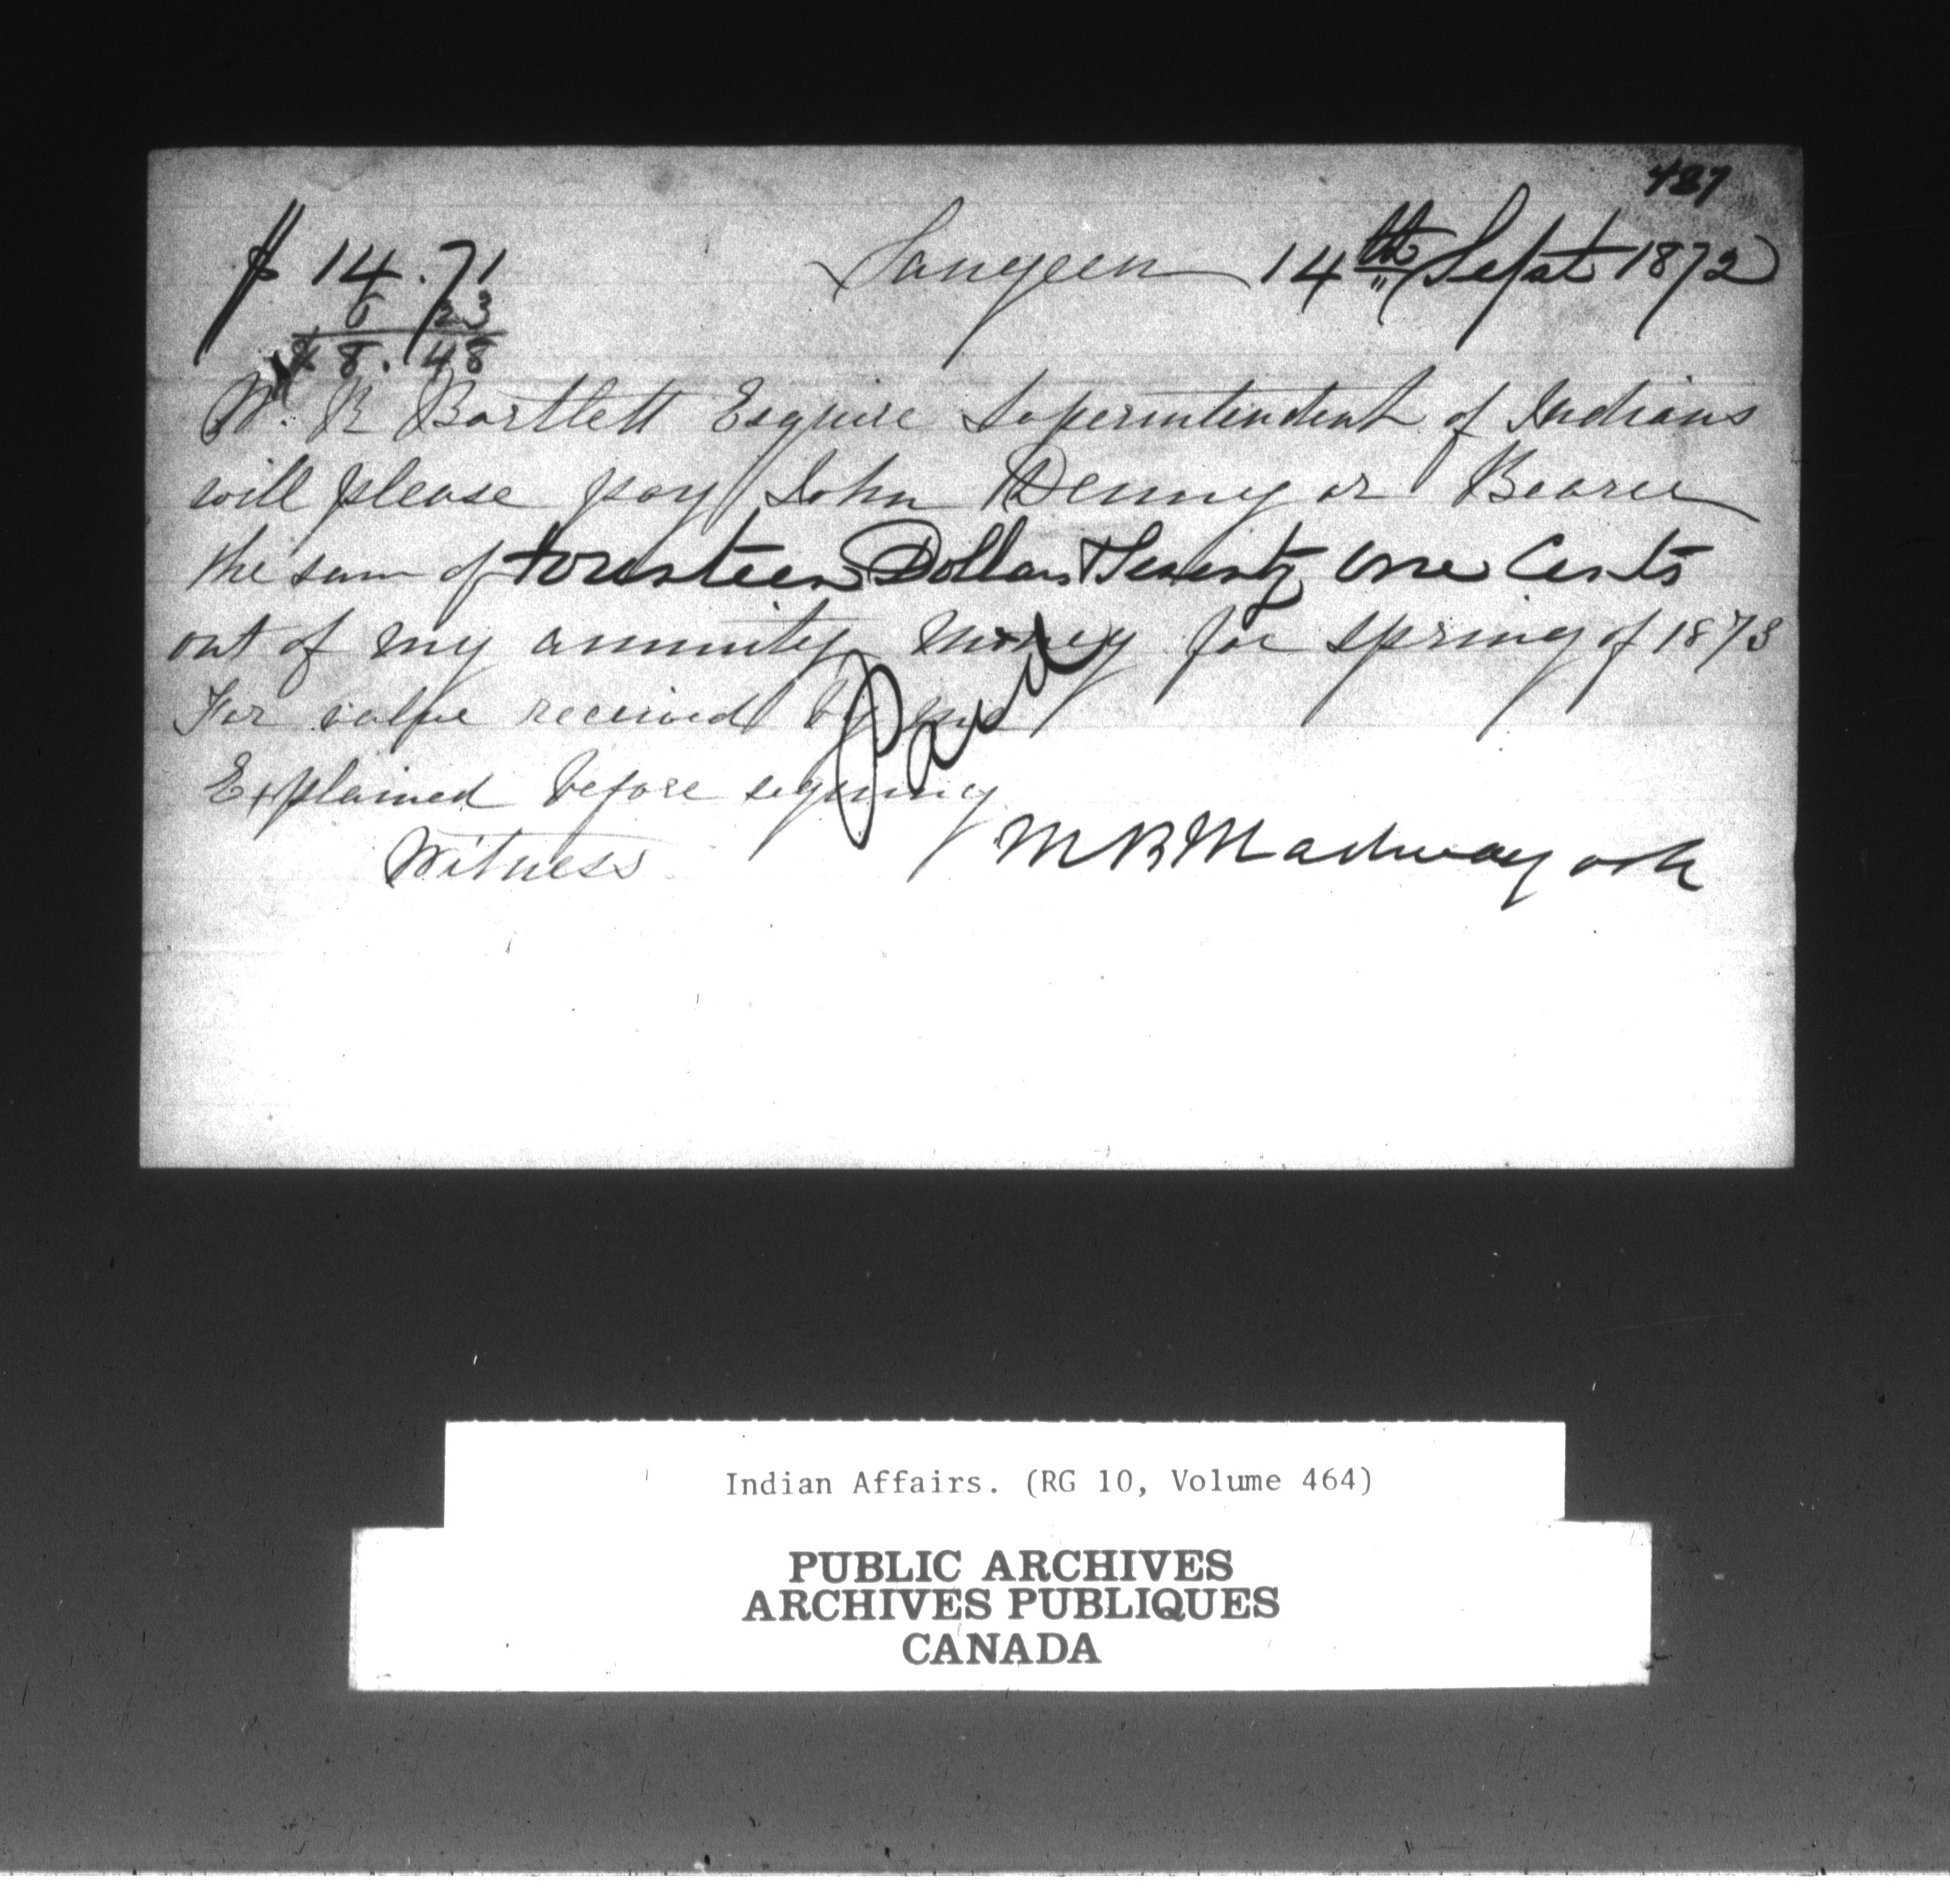 487
$14.71 Saugeen 14th Sept 1872
6 23
$8.48
W. R Bartlett Esquire Superintendent of Indians
will please pay John Denny or Bearer
the sum of fourteen Dollars & Seventy One Cents
out of my annuity money for spring of 1873
For value received by me
Paid
Explained before signing
Witness
Indian Affairs. (RG 10, Volume 464)
PUBLIC ARCHIVES
ARCHIVES PUBLIQUES
CANADA